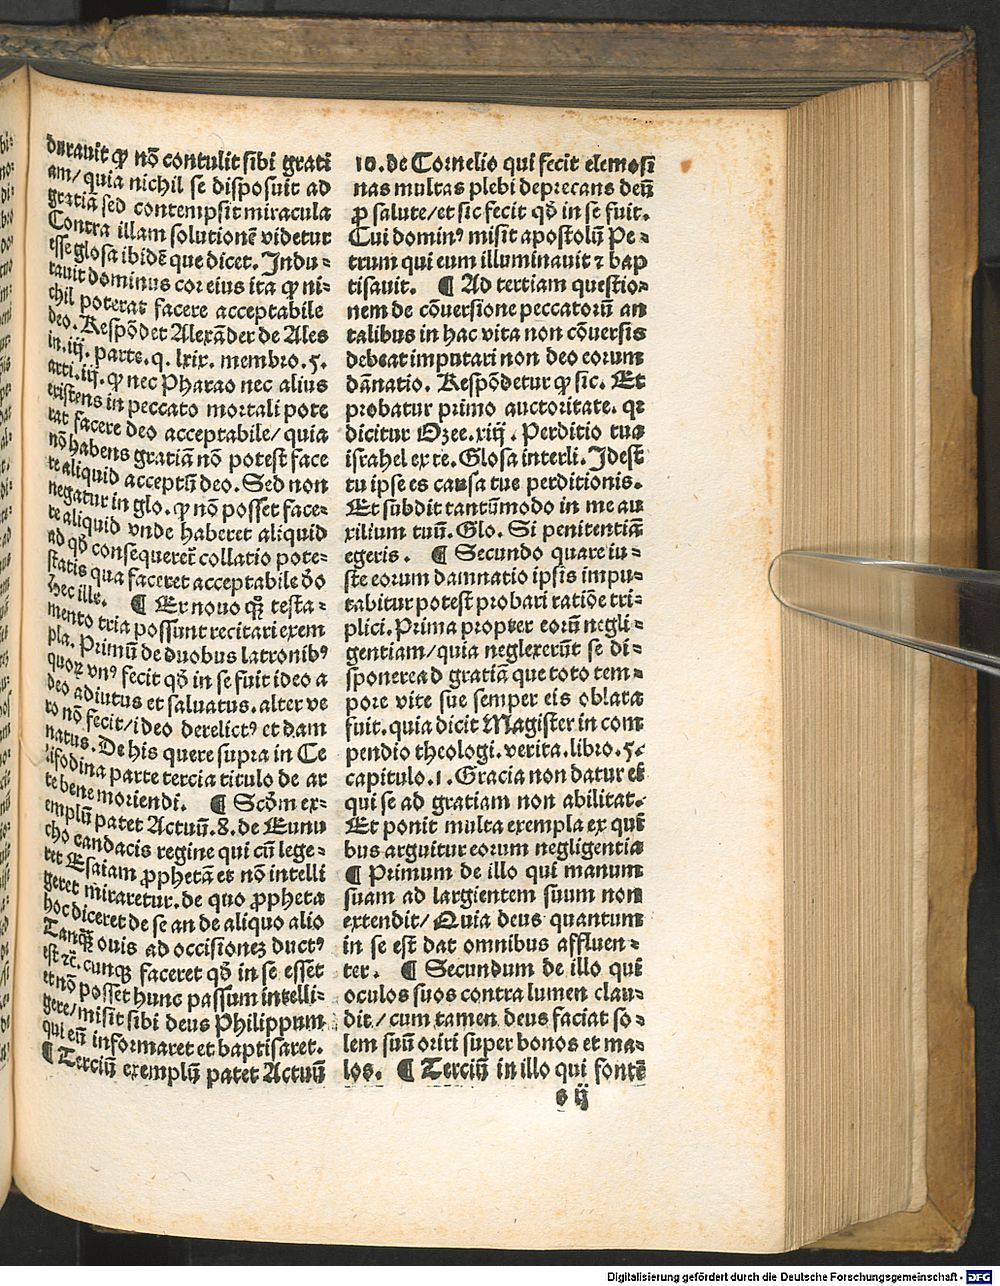 durauit ꝙ nō contulit sibi grati
am/ quia nichil se disposuit ad
gratiā sed contempsit miracula
Contra illam solutionē videtur
esse glosa ibidē que dicet. Indu-
rauit dominus cor eius ita ꝙ ni-
chil poterat facere acceptabile
deo. Respōdet Alexāder de Ales
in .iij. parte. q. lxix. membro .5.
arti. iij. ꝙ nec Pharao nec alius
existens in peccato mortali pote
rat facere deo acceptabile/ quia
nō habens gratiā nō potest face
re aliquid acceptū deo. Sed non
negatur in glo. ꝙ nō posset face-
re aliquid vnde haberet aliquid
ad qd̄ consequeret̄ collatio pote-
statis qua faceret acceptabile d̄o
hec ille. ¶ Ex nouo qꝫ testa-
mento tria possunt recitari exem
pla. Primū de duobus latronibꝰ
quoꝝ vnꝰ fecit qd̄ in se fuit ideo a
deo adiutus et saluatus. alter ve
ro nō fecit/ ideo derelictꝰ et dam
natus. De his quere supra in Ce
lifodina parte tercia titulo de ar
te bene moriendi. ¶ Scd̄m ex-
emplū patet Actuū. 8. de Eunu
cho candacis regine qui cū lege-
ret Esaiam ꝓphetā et nō intelli
geret miraretur. de quo ꝓpheta
hoc diceret de se an de aliquo alio
Tanqꝫ ouis ad occisioneꝫ ductꝰ
est ⁊c̄. cunqꝫ faceret qd̄ in se esset
et nō posset hunc passum intelli-
gere/ misit sibi deus Philippum
qui eū informaret et baptisaret.
¶ Terciū exemplū patet Actuū
10. de Cornelio qui fecit elemosi
nas multas plebi deprecans deū
ꝓ salute/ et sic fecit qd̄ in se fuit.
Cui dominꝰ misit apostolū Pe-
trum qui eum illuminauit ⁊ bap
tisauit. ¶ Ad tertiam questio-
nem de cōuersione peccatorū an
talibus in hac vita non cōuersis
debeat imputari non deo eorum
dānatio. Respōdetur ꝙ sic. Et
probatur primo auctoritate. qꝛ
dicitur Ozee. xiij. Perditio tua
israhel ex te. Glosa interli. Idest
tu ipse es causa tue perditionis.
Et subdit tantūmodo in me au
xilium tuū. Glo. Si penitentiā
egeris. ¶ Secundo quare iu-
ste eorum damnatio ipsis impu-
tabitur potest probari ratiōe tri-
plici. Prima propter eorū negli-
gentiam/ quia neglexerūt se di-
sponere ad gratiā que toto tem-
pore vite sue semper eis oblata
fuit. quia dicit Magister in com
pendio theologi. verita. libro. 5.
capitulo. 1. Gracia non datur ei
qui se ad gratiam non abilitat.
Et ponit multa exempla ex qui
bus arguitur eorum negligentia
¶ Primum de illo qui manum
suam ad largientem suum non
extendit/ Quia deus quantum
in se est dat omnibus affluen-
ter. ¶ Secundum de illo qui
oculos suos contra lumen clau-
dit/ cum tamen deus faciat so-
lem suū oriri super bonos et ma-
los. ¶ Terciū in illo qui fontē
ij
Digitalisierung gefördert durch die Deutsche Forschungsgemeinschaft - DFG